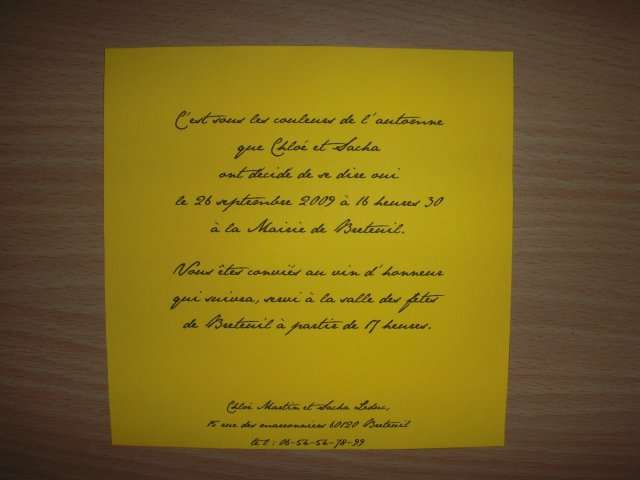 C'est sous les couleurs de l'automne
que Chloé et Sacha
ont décidé de se dire oui
le 26 septembre 2009 à 16 heures 30
à la Mairie de Breteuil.
Vous êtes conviés au vin d'honneur
qui suivra, servi à la salle des fêtes
de Breteuil à partir de 17 heures.
Chloé Martin et Sacha Leduc,
15 rue des marronniers 60120 Breteuil
tél : 06-54-54-78-99